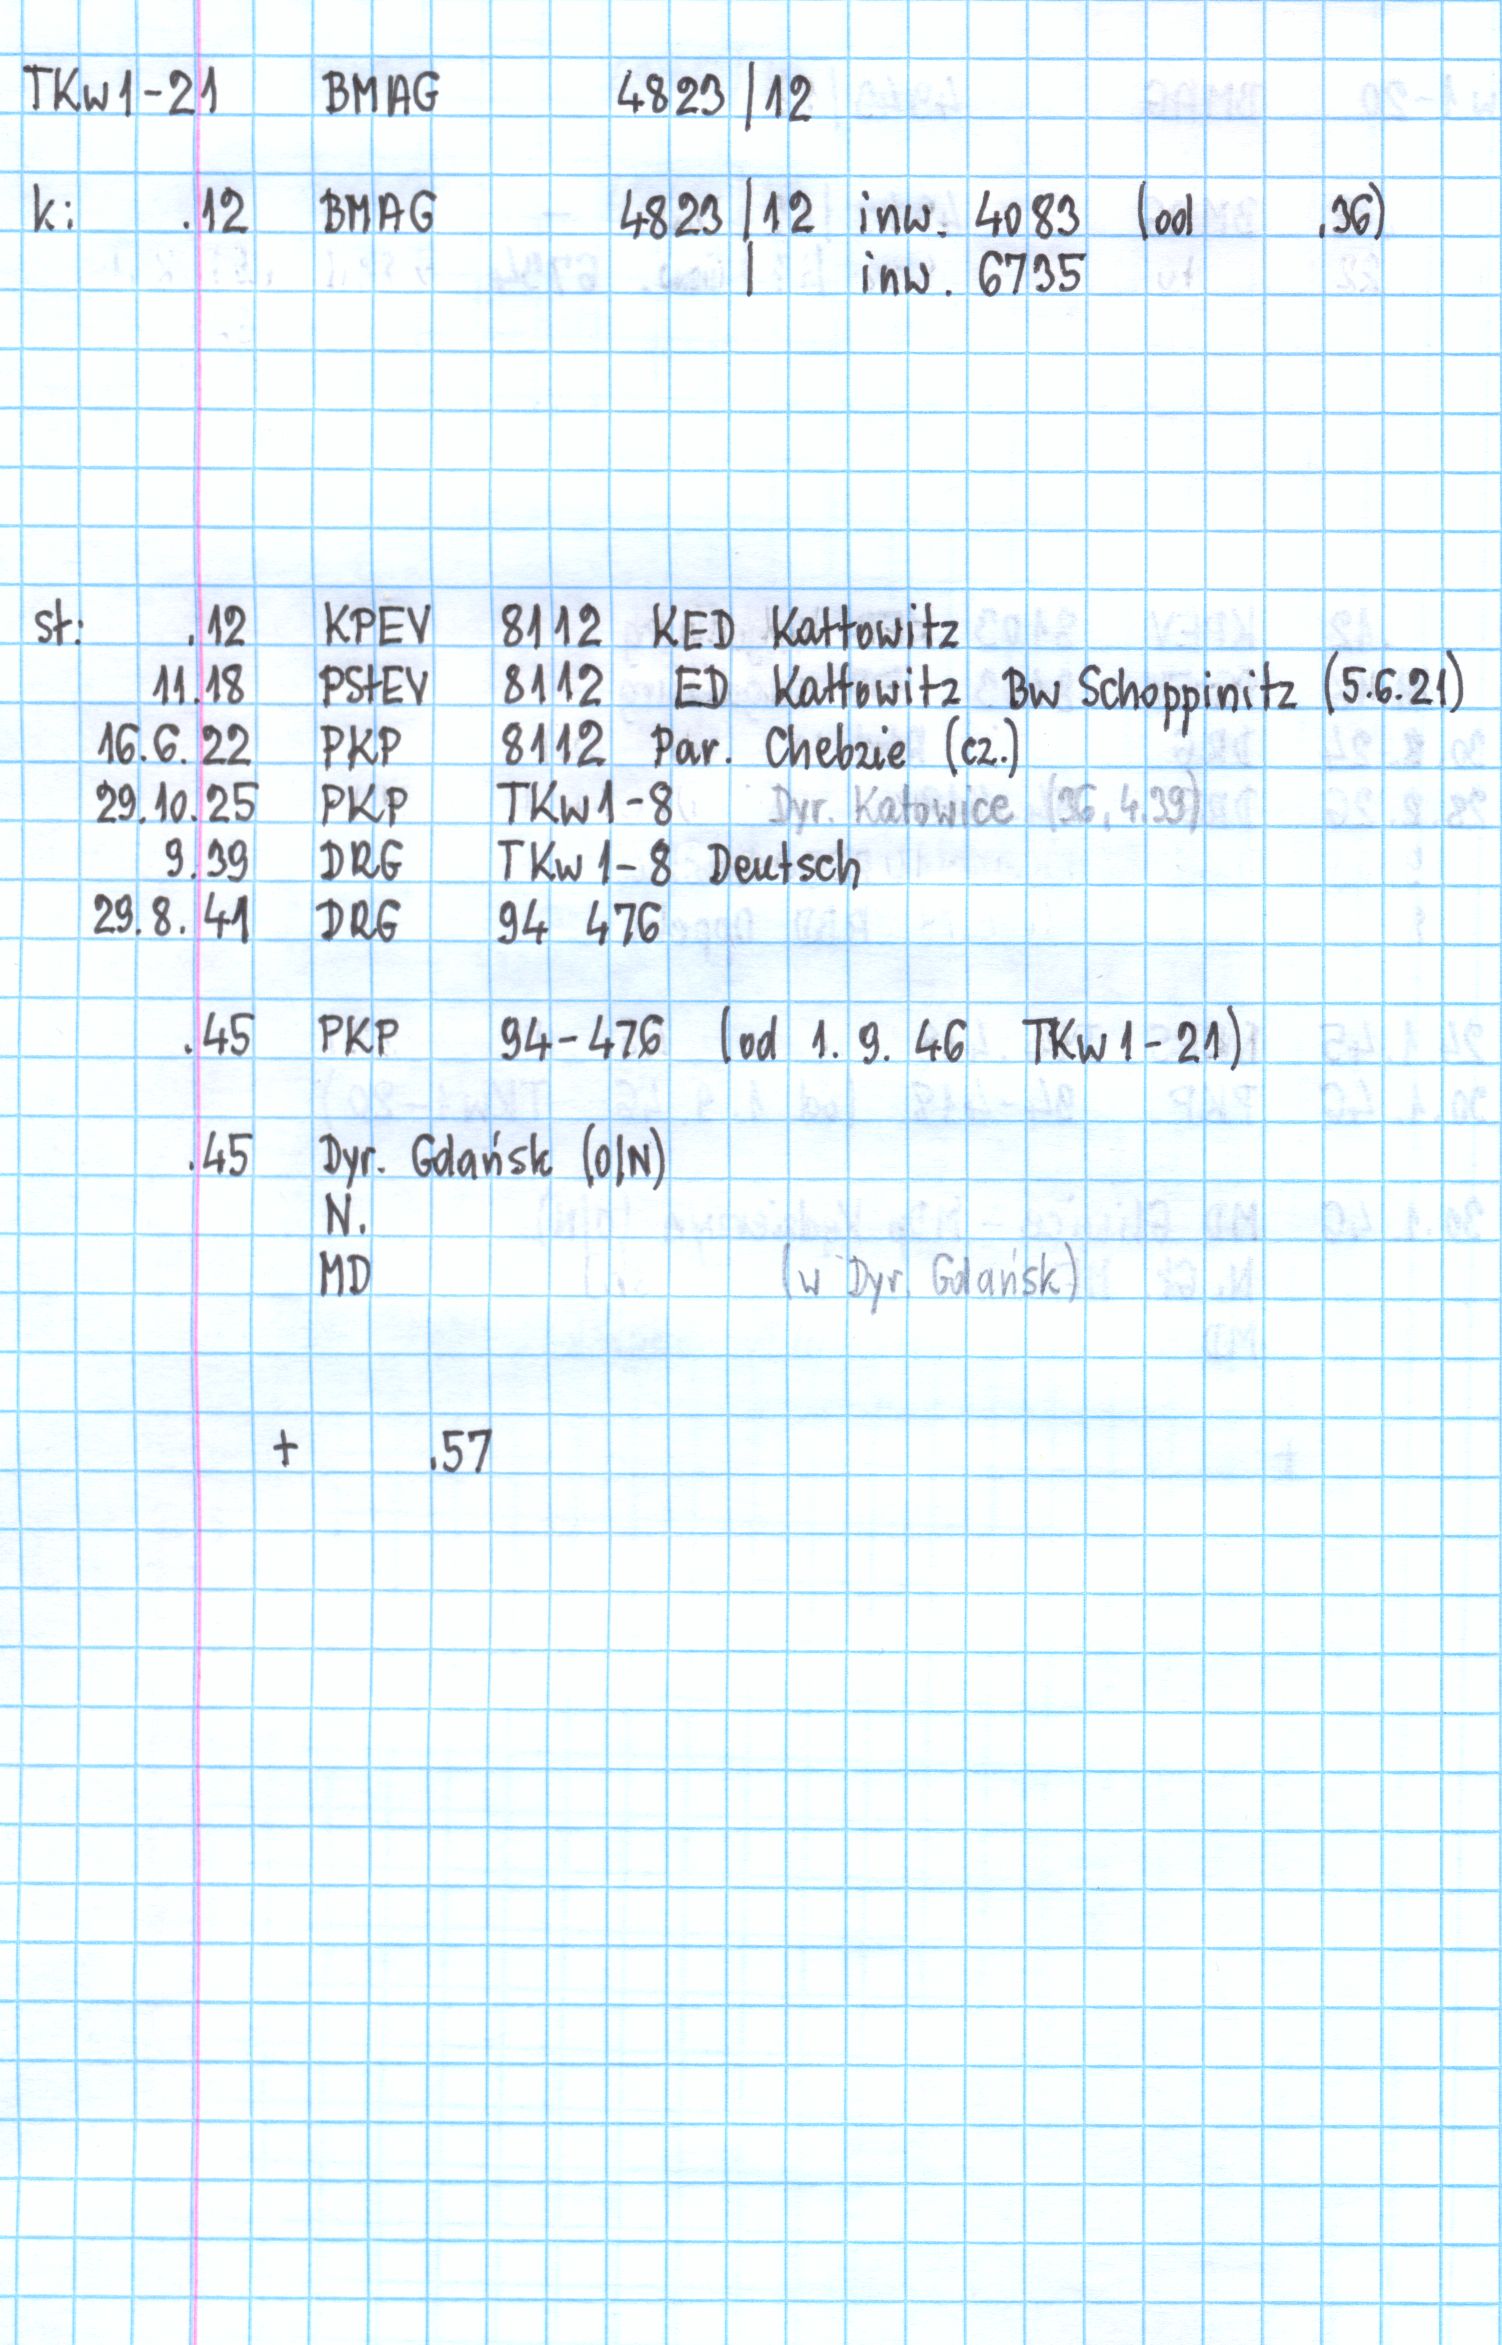 TKw1-21 BMAG 4823/12
k: .12 BMAG 4823/12 inw. 4083 (od .36)
/ inw. 6735
st: .12 KPEV 8112 KED Kattowitz
11.18 PStEV 8112 ED Kattowitz Bw Schoppinitz (5.6.21)
16.6.22 PKP 8112 Par. Chebzie (cz.)
29.10.25 PKP TKw1-8 Dyr. Katowice (36, 4.39)
9.39 DRG TKw1-8 Deutsch
29.8.41 DRG 94 476
.45 PKP 94-476 (od 1.9.46 TKw1-21)
.45 Dyr. Gdańsk (0/N)
N.
MD (w Dyr. Gdańsk)
+ .57